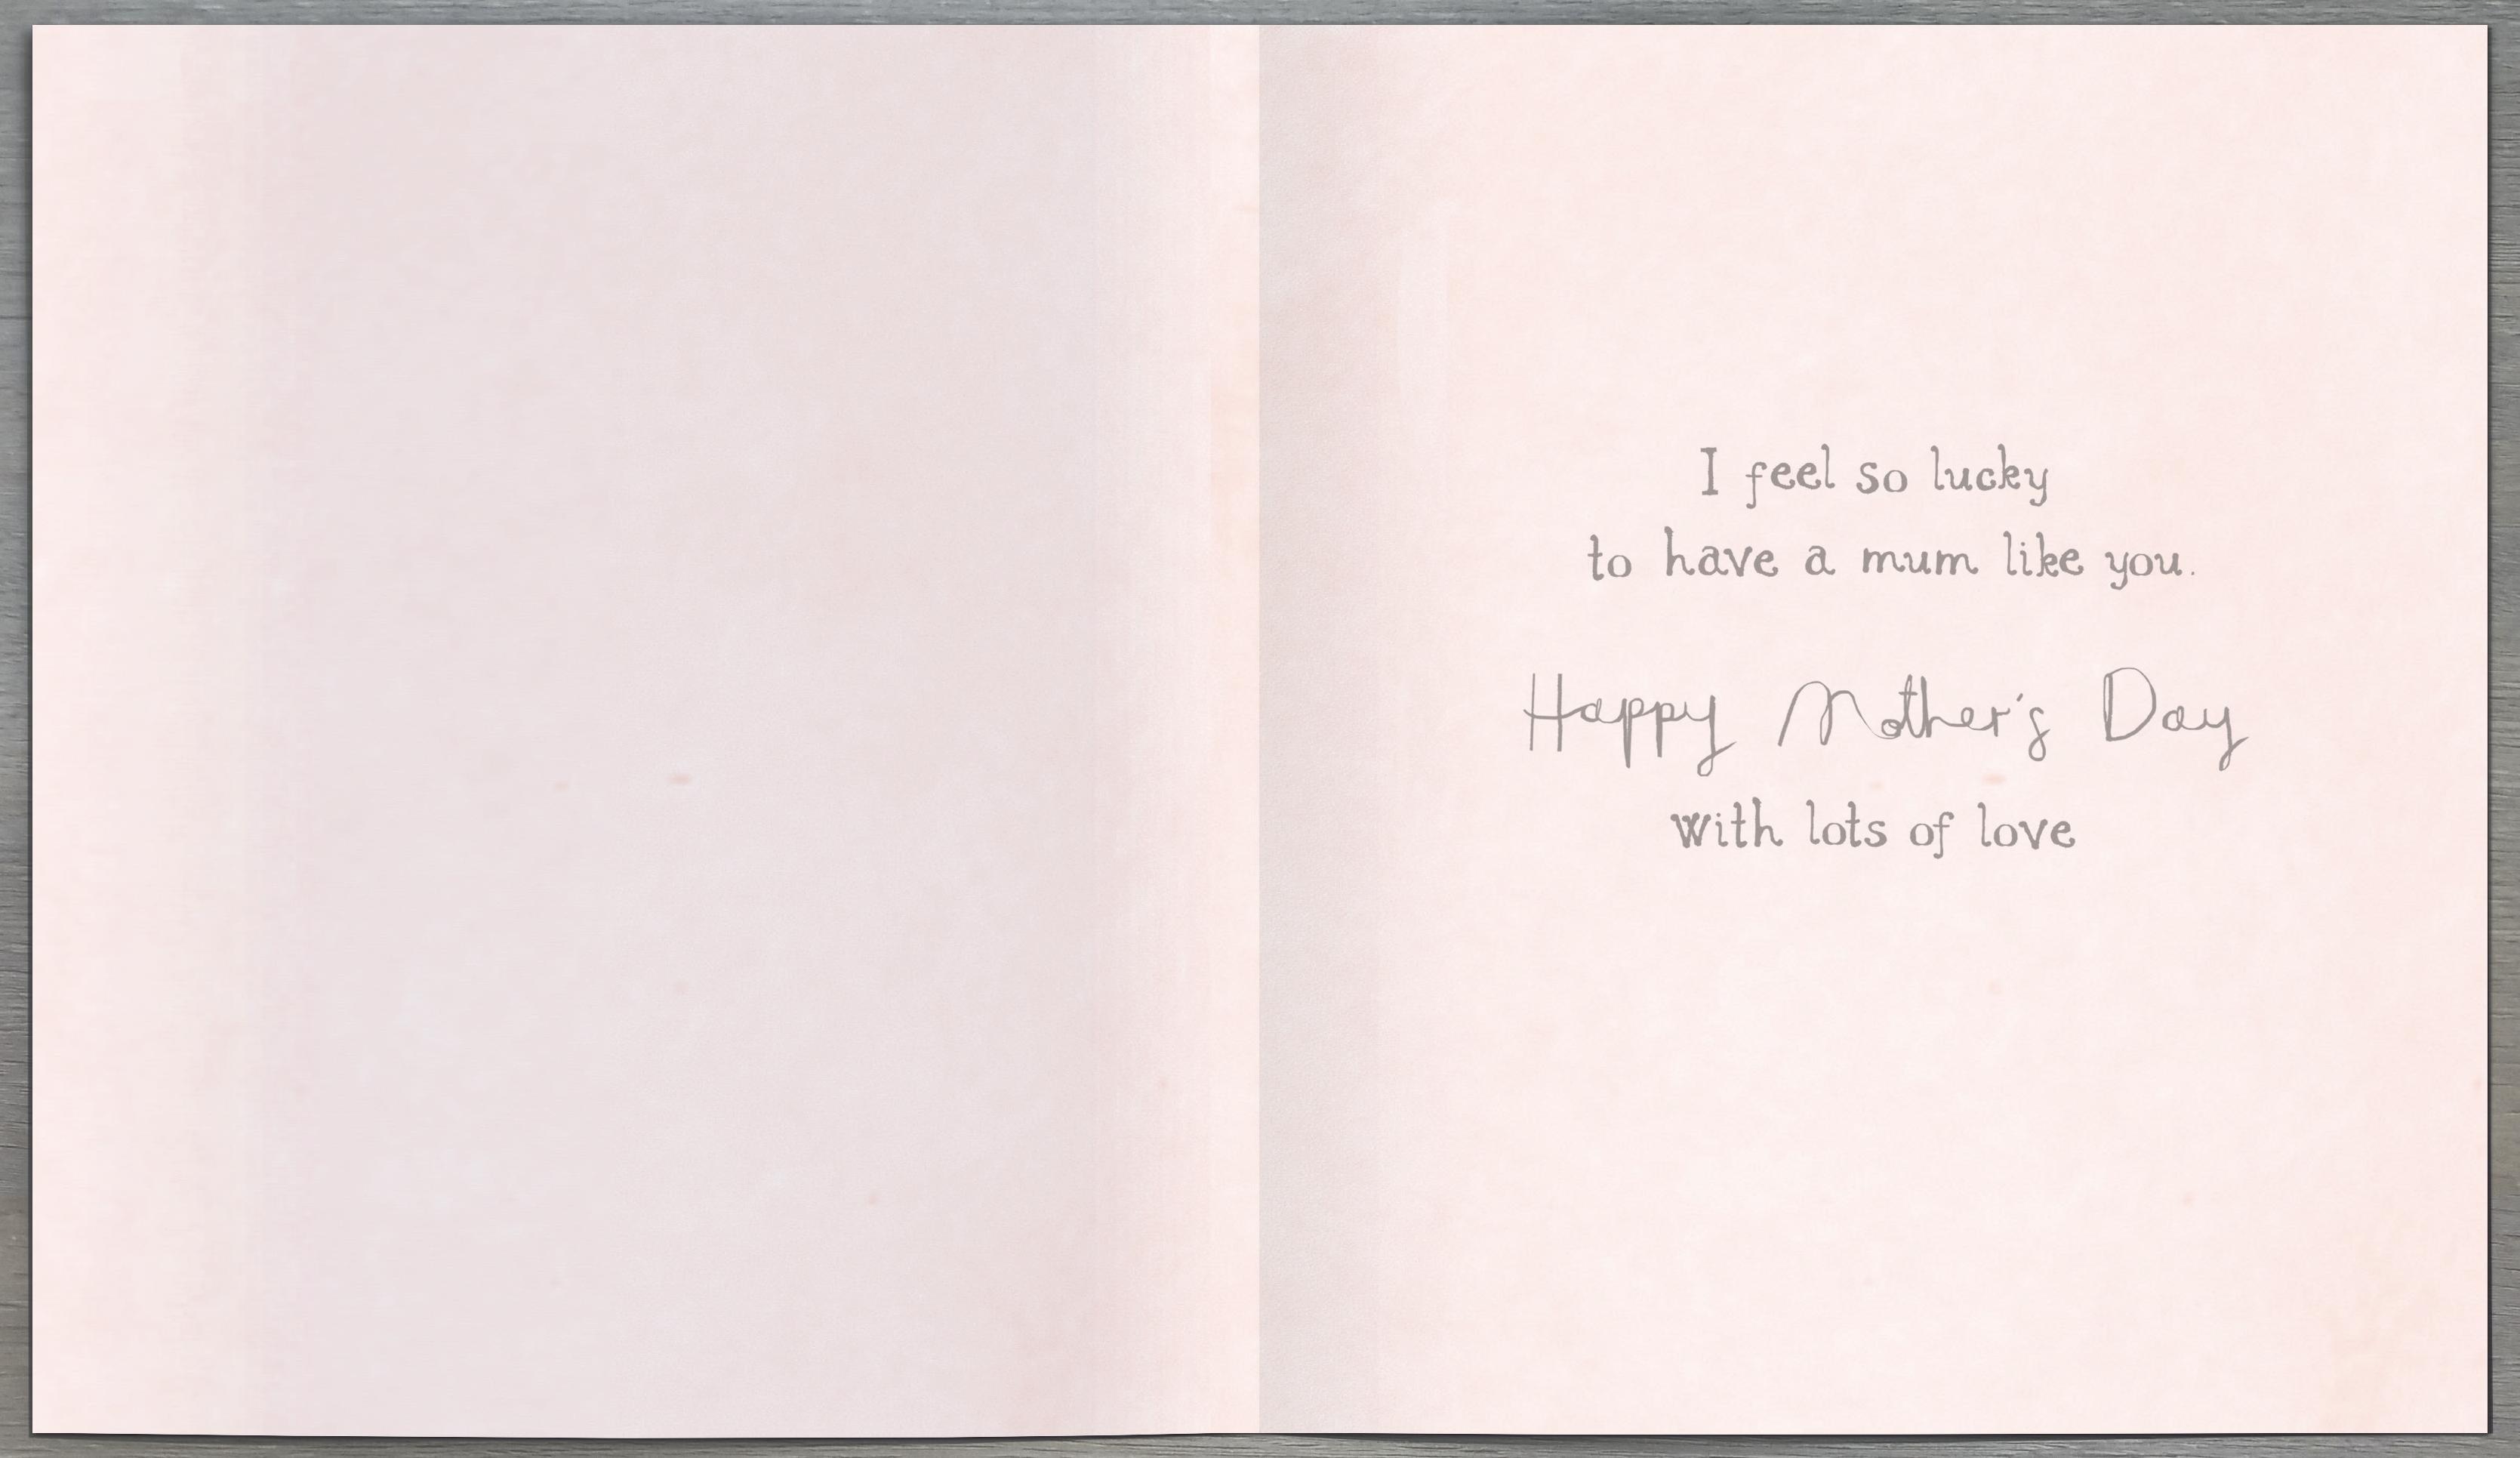 I feel so lucky
to have a mum like you.
Happy Mother's Day
with lots of love